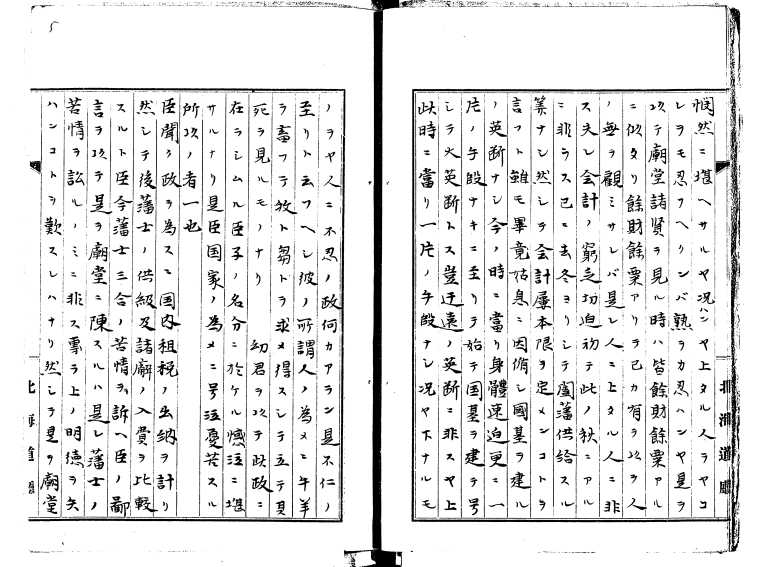 惘然ニ堪ヘサルヤ況ンヤ上タル人ヲヤコ
レヲモ忍フヘクンバ熟ヲカ忍ハンヤ是ヲ
以テ廟堂諸賢ヲ見ル時ハ皆餘財餘粟アル
ニ似タリ餘財餘粟アリテ己カ有ヲ以テ人
ノ無ヲ観ミサレバ是レ人ニ上タル人ニ非
ス夫レ会計ノ窮乏切迫初テ此ノ秋ニアル
ニ非ラス已ニ去冬ヨリシテ盧藩供給スル
筭ナシ然シテ会計屢本限ヲ定メンコトヲ
言フト雖モ畢竟姑息ニ因循シ國墓ヲ建ル
ノ英断ナシ今ノ時ニ當リ身體速迫更ニ一
片ノ手段ナキニ至リテ始テ国墓ヲ建テ号
シテ大英断トス豈迂遠ノ英断ニ非スヤ上
此時ニ當リ一片ノ手段ナシ況ヤ下ナルモ
ノヲヤ人ニ不忍ノ政何カアラン是不仁ノ
至リト云フヘシ彼ノ所謂人ノ為メニ牛羊
ヲ畜フテ牧ト芻トヲ求メ得スシテ立テ其
死ヲ見ルモノナリ 幼君ヲ以テ此政ニ
在ラシムル臣子ノ名分ニ於ケル慚泣ニ堪
サルナリ是臣国家ノ為メニ号泣憂苦スル
所以ノ者一也
臣聞ク政ヲ為スニ国内租税ノ出納ヲ計リ
然シテ後藩士ノ供給及諸廨ノ入費ヲ比較
スルト臣今藩士三合ノ苦情ヲ訴ヘ臣ノ鄙
言ヲ以テ是ヲ廟堂ニ陳スルハ是レ藩士ノ
苦情ヲ訟ルノミニ非ス専ラ上ノ明徳ヲ失
ハンコトヲ歎スレハナリ然シテ是ヲ廟堂
北海道廳